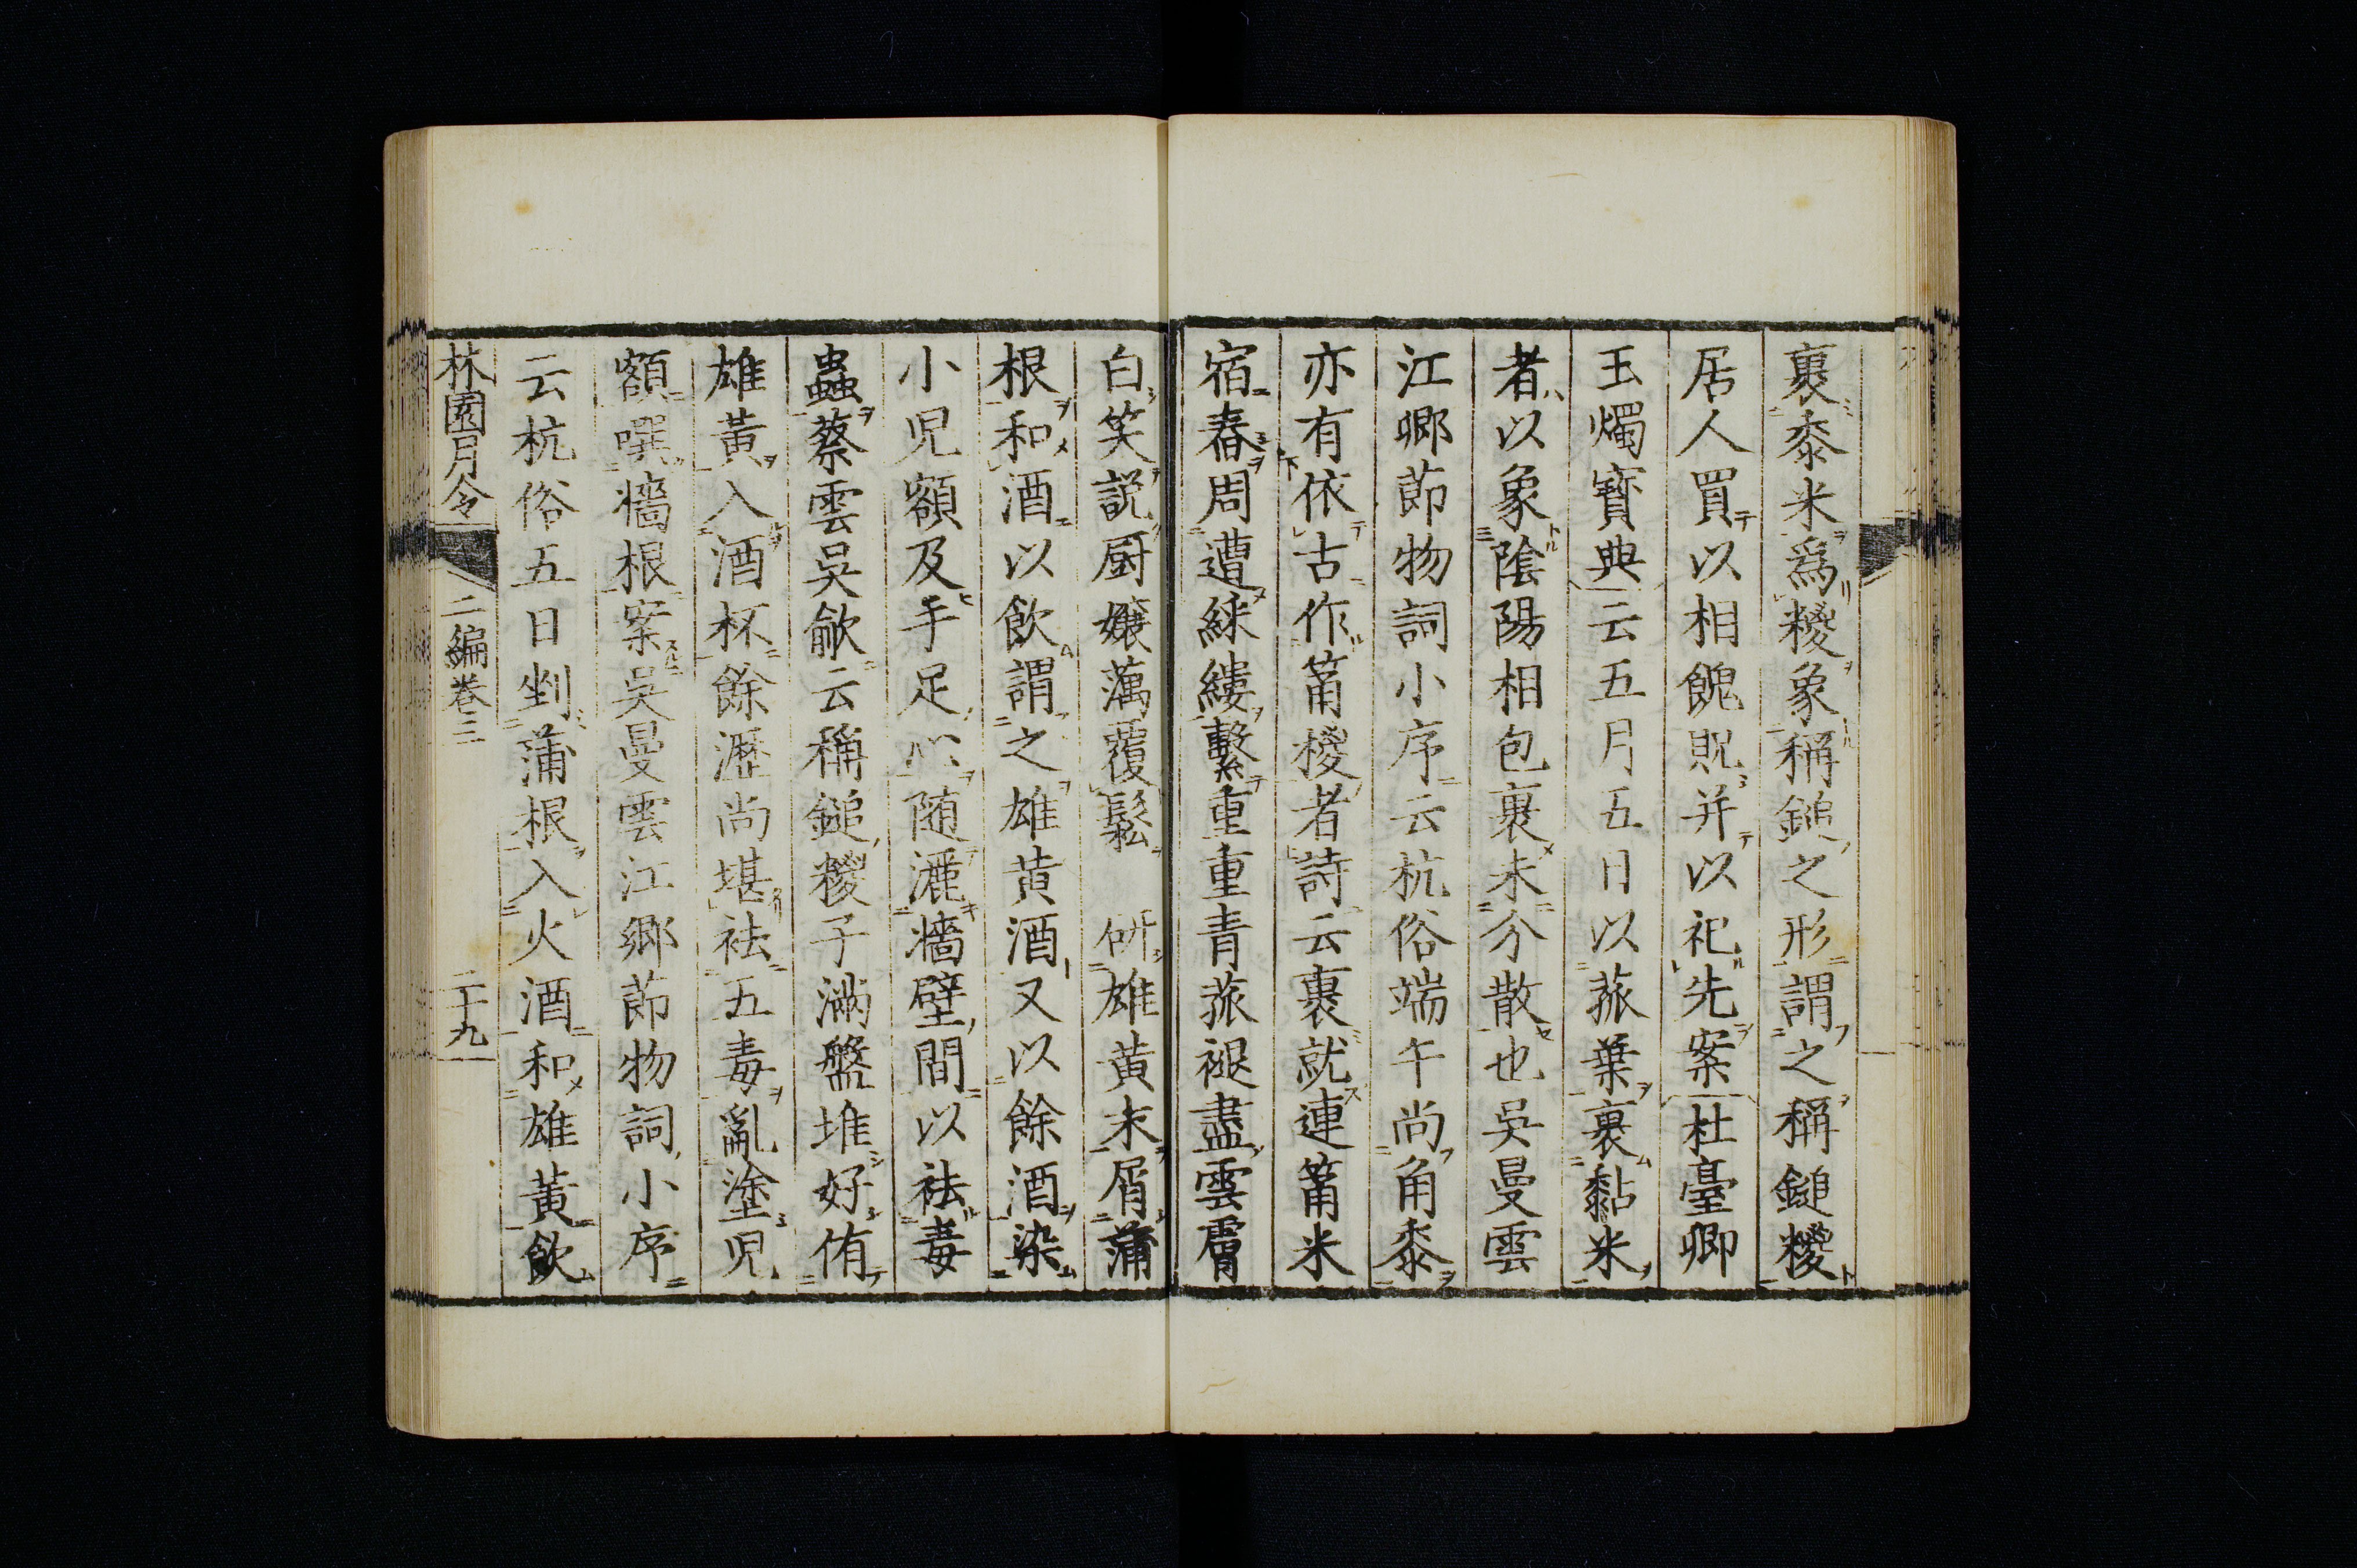 裹黍米爲糉象稱鎚之形謂之稱鎚糉
居人買以相餽貺并以祀先案杜臺卿
玉燭寶典云五月五日以菰葉裹黏米
者以象陰陽相包裹未分散也吳曼雲
江鄉節物詞小序云杭俗端午尚角黍
亦有依古作筩糉者詩云裹就連筩米
宿舂周遭綵縷繫重重青菰褪盡雲膚
白笑説厨孃藕覆鬆 研雄黄末屑蒲
根和酒以飲謂之雄黄酒又以餘酒染
小児額及手足心随灑牆壁間以袪毒
蟲蔡雲吳歈云稱鎚糉子滿盤堆好侑
雄黄入酒杯餘瀝尚堪袪五毒亂塗児
額噀牆根案吳曼雲江鄉節物詞小序
云杭俗五日剉蒲根入火酒和雄黄飲
林園月令 二編卷三 二十九